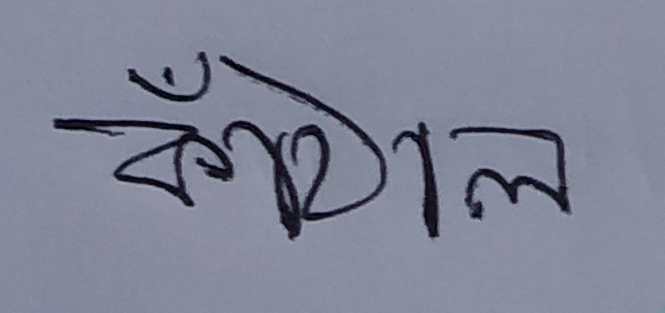 কাঁঠাল